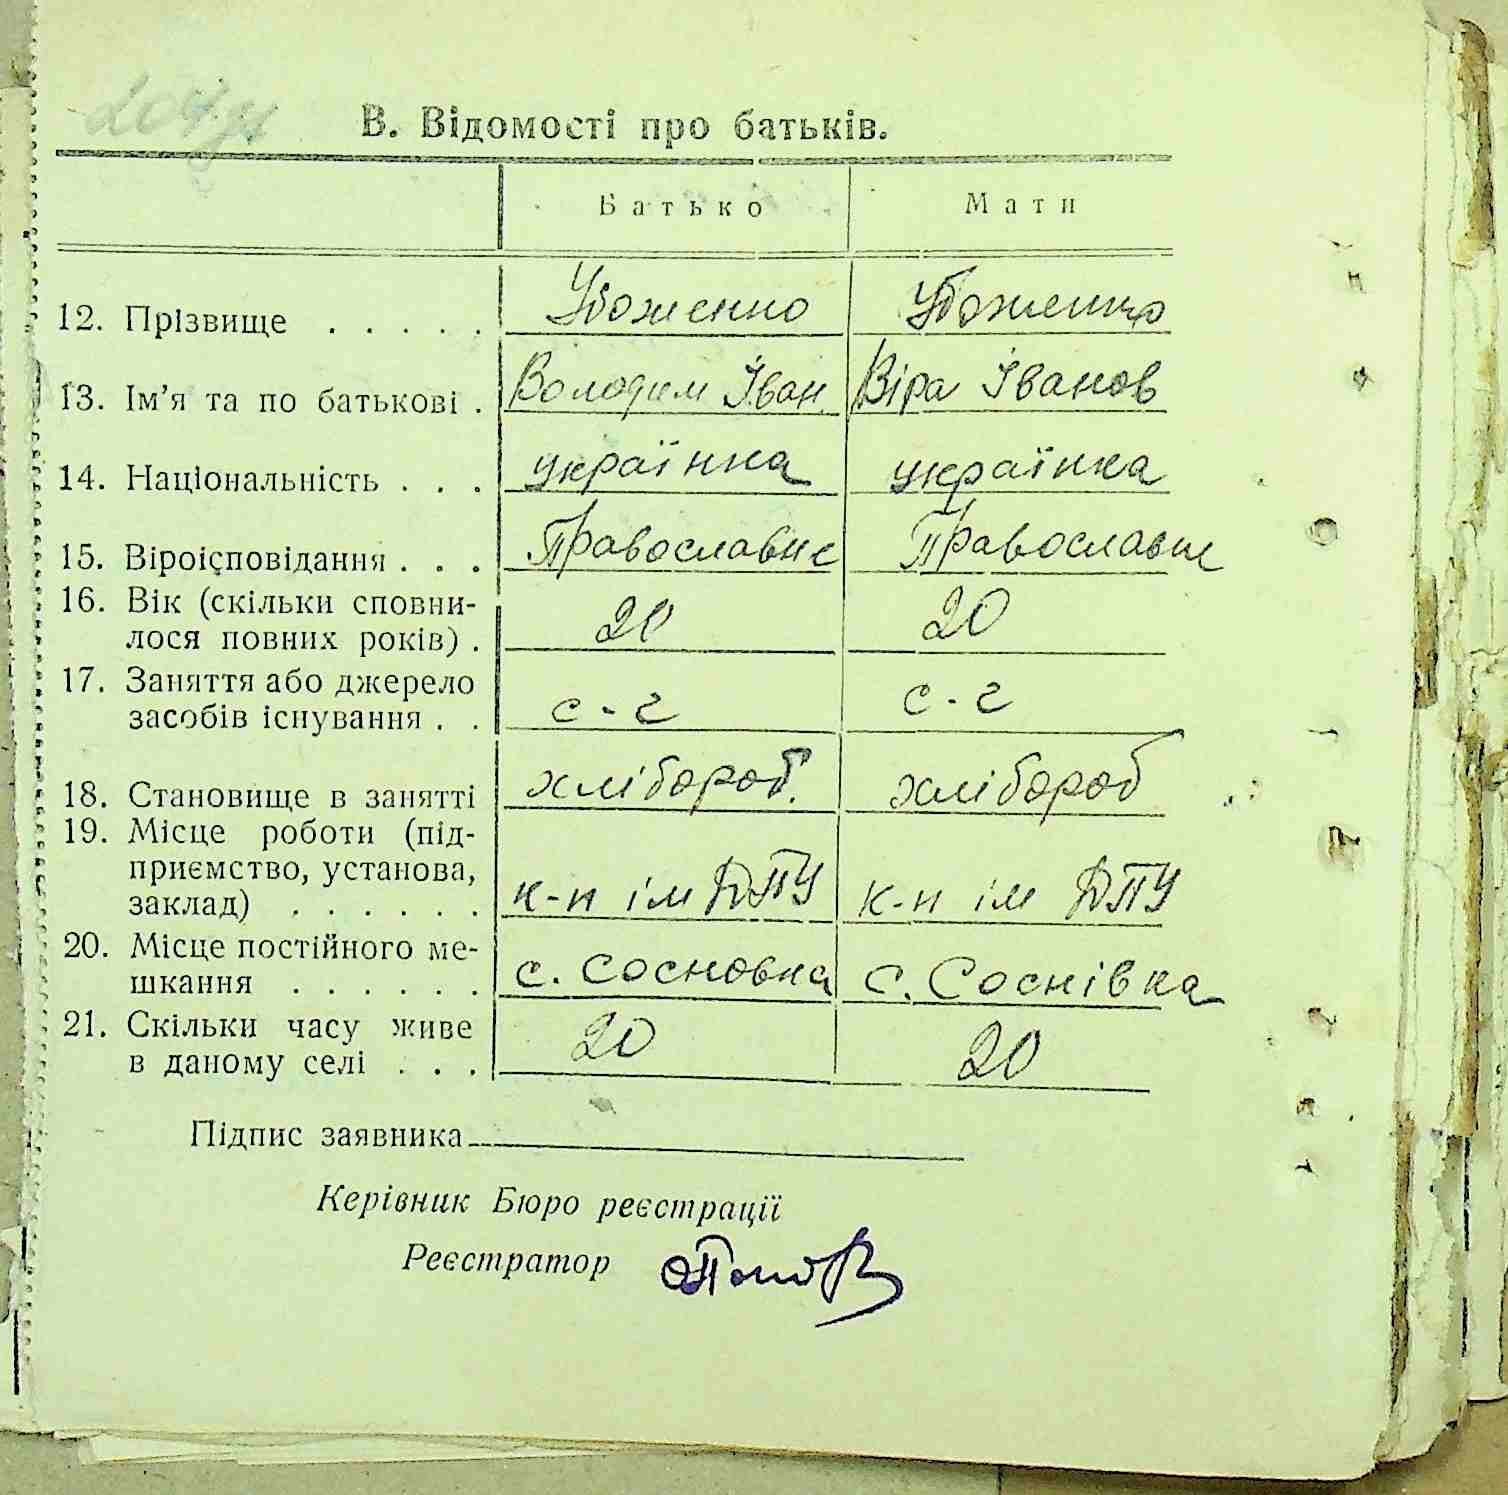 В. Відомості про батьків.
Батько Мати
12. Прізвище . . . . . Убоженко Убоженко
13. Ім’я та по батькові . Володим Іван. Віра Іванов
14. Національність . . . українка українка
15. Віроісповідання . . . Православне Православне
16. Вік (скільки сповни-
лося повних років) . 20 20
17. Заняття або джерело
засобів існування . . с-г с-г
18. Становище в занятті хлібороб. хлібороб
19. Місце роботи (під-
приємство, установа,
заклад) . . . . . . к-п ім ДПУ к-п ім ДПУ
20. Місце постійного ме-
шкання . . . . . . с. Сосновка с. Соснівка
21. Скільки часу живе
в даному селі . . . 20 20
Підпис заявника
Керівник Бюро реєстрації
Реєстратор